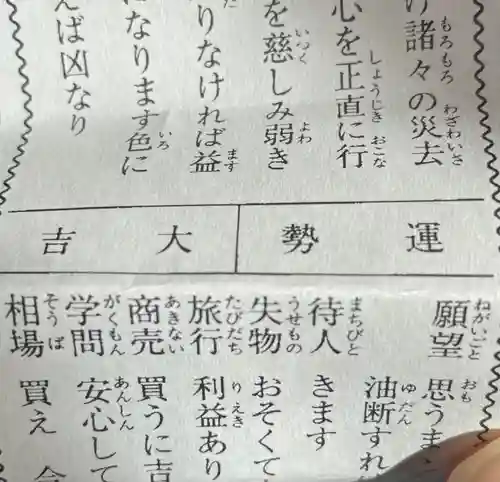 諸々の災去
心を正直に行
を慈しみ弱き
りなければ益
なります色に
んば凶なり
運勢 大吉
願望 思うま
油断すれ
待人 きます
失物 おそくて
旅行 利益あり
商売 買うに吉
学問 安心して
相場 買え